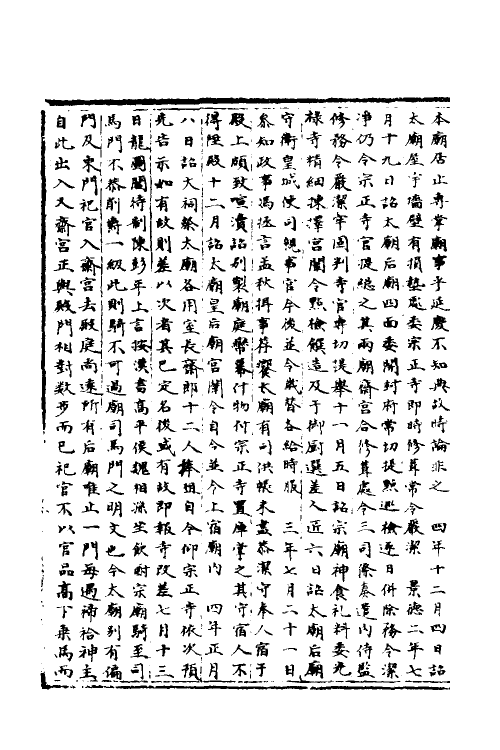 本廟居止專掌廟事子延慶不知典故時論非之　四年十二月四日詔
太廟屋宇牆壁有損墊處委宗正寺即時修葺常令嚴潔　景德二年七
月十九日詔太廟后廟四面委開封府常切提點巡檢逐日併除務令潔
淨仍令宗正寺官提總之其兩廟齋宮合修葺處令三司漆奏造內侍監
修務令嚴潔牢固判寺官專切提舉十一月五日詔宗廟神食禮料委光
祿寺精細揀擇宮闈令點檢饌造及于御廚選差人近六日詔太廟后廟
守衛皇城使司親事官今後並令歲替各給時服　三年七月二十一日
參知政事馮拯言孟秋攝事荐饗太廟有司供帳未盡恭潔守奉人宿于
殿上頗致喧瀆詔別製廟庭帟幕什物付宗正寺置庫掌之其守宿人不
得陞殿十二月詔太廟皇后廟宮闈令自今並令上宿廟內　四年正月
八日詔大祠祭太廟各用室長齋郎十二人捧俎自今仰宗正寺依次預
先告示如有故則差以次者其已定名後或有故即報寺改差七月十三
日龍圖閣待制陳彭年上言按漢書高平侯魏相派坐飲酎宗廟騎至司
馬門不恭削爵一級此則騎不可過廟司馬門之明文也今太廟別有偏
門及東門祀官入齋宮去殿庭尚遠所有后廟唯止一門每過禘祫神主
自此出入又齋宮正與殿門相對數步而已祀官不以官品高下乘馬而